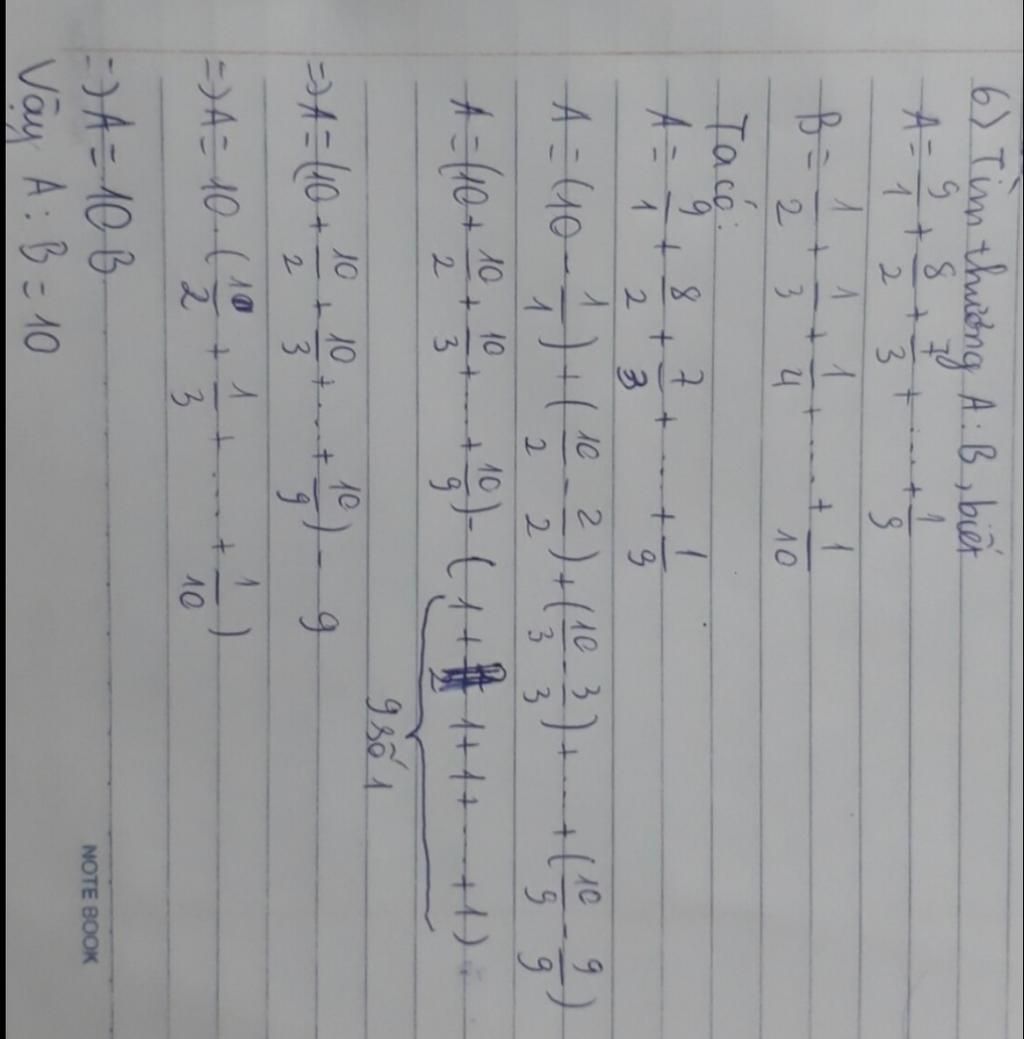 6) Tìm thương A:B, biết
A = 9/1 + 8/2 + 7/3 + ..... + 1/9
B = 1/2 + 1/3 + 1/4 + ..... + 1/10
Ta có:
A = 9/1 + 8/2 + 7/3 + ..... + 1/9
A = (10 - 1/1) + (10/2 - 2/2) + (10/3 - 3/3) + ..... + (10/9 - 9/9)
A = (10 + 10/2 + 10/3 + ..... + 10/9) - (1 + 1 + 1 + ..... + 1)
9 số 1
=> A = (10 + 10/2 + 10/3 + ..... + 10/9) - 9
=> A = 10 . (10/2 + 1/3 + ..... + 1/10)
=> A = 10 B
Vậy A : B = 10
NOTE BOOK